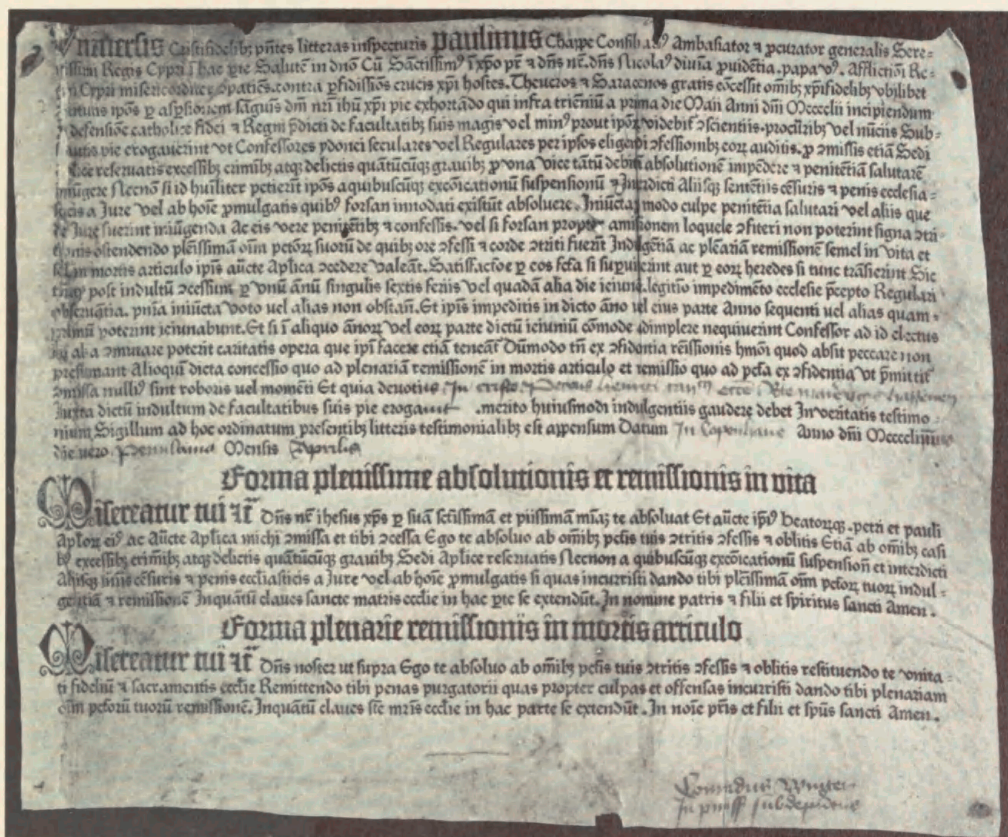 Universis Cristifidelibꝫ pñtes litteras inspecturis paulinus Chappe Consiliariꝰ Ambasiator ⁊ ꝓcurator generalis Sere-
nissimi Regis Cypri ī hac ꝑte Salutē in dño Cū Sāctissimꝰ ī xpo pr̄ ⁊ dñs nr̄. dñs Nicolaꝰ diuīa ꝓuidētia. papa vꝰ. Afflictiōi Re-
gni Cypri misericorditer ꝯpatiēs. contra ꝑfidissios crucis xpi hostes. Theucros ⁊ Saracenos gratis ꝯcessit omībꝫ xpifidelibꝫ vbilibet
ꝯstitutis ipōs ꝑ asꝑsionem sāguīs dñi nr̄i ihū xpi pie exhortādo qui infra triēniū a prima die Maii Anni dñi Mcccclii incipiendum
ꝓ defensiōe catholice fidei ⁊ Regni p̄dicti de facultatibꝫ suis magis vel minꝰ prout ipōꝝ videbit᷑ ꝯscientiis. ꝓcuratoribꝫ vel nūciis Sub-
stitutis pie erogauerint vt Confessores ydonei seculares vel Regulares per ipsos eligēdi ꝯfessionibꝫ eoꝝ auditis. ꝓ ꝯmissis etiā Sedi
Aplice reseruatis excessibꝫ crimībꝫ atqꝫ delictis quātūcūqꝫ grauibꝫ ꝓ vna vice tātū debitā absolutionē impēdere ⁊ penitētiā salutarē
iniūgere Necnō si id huīliter petierīt ipōs a quibuscūqꝫ excōicationū suspensionū ⁊ Interdicti Aliisqꝫ sentētiis cēsuris ⁊ penis ecclesia-
sticis a Jure vel ab hoīe ꝓmulgatis quibꝰ forsan innodati existūt absoluere. Iniūcta ꝑ modo culpe penitētia salutari vel aliis que
de Jure fuerint iniūgenda Ac eis vere penitētibꝫ ⁊ confessis. vel si forsan propter amissionem loquele ꝯfiteri non poterint signa ꝯtri-
tionis ostendendo plēissimā oīm petōꝝ suoꝝ de quibꝫ ore ꝯfessi ⁊ corde ꝯtriti fuerīt Indulgētiā ac plēariā remissionē semel in vita et
semel in mortis articulo ipīs aūcte Aplica ꝯcedere valeāt. Satisfactōe ꝑ eos fcā si suꝑuixerint aut ꝑ eoꝝ heredes si tunc trāsierint Sic
tamē ꝙ post indultū ꝯcessum ꝑ vnū annū singulis sextis feriis vel quadā alia die ieiunēt. legitīo impedimēto ecclesie p̄cepto Regulari
obseruātia. pnīa iniūcta voto vel alias non obstañ. Et ipīs impeditis in dicto āno vel eius parte Anno sequenti vel alias quam-
primū poterint ieiunabunt. Et si ī aliquo ānoꝝ vel eoꝝ parte dictū ieiuniū cōmode adimplere nequiuerint Confessor ad id electus
in alia ꝯmutare poterit caritatis opera que ipī facere etiā teneāt᷑ Dūmodo tñ ex ꝯfidentia rēissionis hmōi quod absit peccare non
presumant Alioqui dicta concessio quo ad plenariā remissionē in mortis articulo et remissio quo ad petā ex ꝯfidentia vt p̄mittit᷑
ꝯmissa nulliꝰ sint roboris vel momēti Et quia deuotus In cristo
Juxta dictū indultum de facultatibus suis pie erogauit .merito huiusmodi indulgentiis gaudere debet In veritatis testimo-
nium Sigillum ad hoc ordinatum presentibꝫ litteris testimonialibꝫ est appensum Datum Anno dñi Mccccliiii
die vero Penultima Mensis Aprilis
Forma plenissime absolutionis et remissionis in vita
Misereatur tui ⁊ć Dñs nr̄ ihesus xp̄s ꝑ suā sctīssimā et piissimā mīaꝫ te absoluat Et aūcte ipīꝰ Beatoꝝqꝫ. petri et pauli
Aploꝝ eiꝰ ac Aūcte Aplica michi ꝯmissa et tibi ꝯcessa Ego te absoluo ab omībꝫ petis tuis ꝯtritis ꝯfessis ⁊ oblitis Etiā ab omībꝫ casi
bꝫ excessibꝫ crimībꝫ atqꝫ delictis quātūcūqꝫ grauibꝫ Sedi Aplice reseruatis Necnon a quibuscūqꝫ excōicationū suspensioñ et interdicti
Aliisqꝫ sniis cēsuris ⁊ penis eccliasticis a Jure vel ab hoīe ꝓmulgatis si quas incurristi dando tibi plēissimā oīm petoꝝ tuoꝝ indul-
gentiā ⁊ remissionē Inquātū claues sancte matris ecclie in hac ꝑte se extendūt. In nomine patris ⁊ filii et spiritus sancti Amen.
Forma plenarie remissionis in mortis articulo
Misereatur tui ⁊ć Dñs noster ut supra Ego te absoluo ab omībꝫ petis tuis ꝯtritis ꝯfessis ⁊ oblitis restituendo te vnita-
ti fideliū ⁊ sacramentis ecclie Remittendo tibi penas purgatorii quas propter culpas et offensas incurristi dando tibi plenariam
oīm petorū tuorū remissionē. Inquātū claues ste mr̄is ecclie in hac parte se extendūt. In noīe pr̄is et filii et spūs sancti Amen.
Conradus
subdeputatus